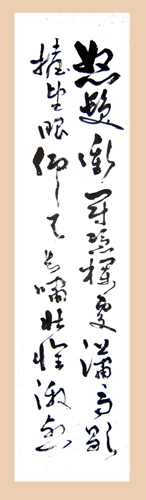 怒髮衝冠憑欄處瀟瀟雨歇
擡望眼仰天長嘯壯懷激烈